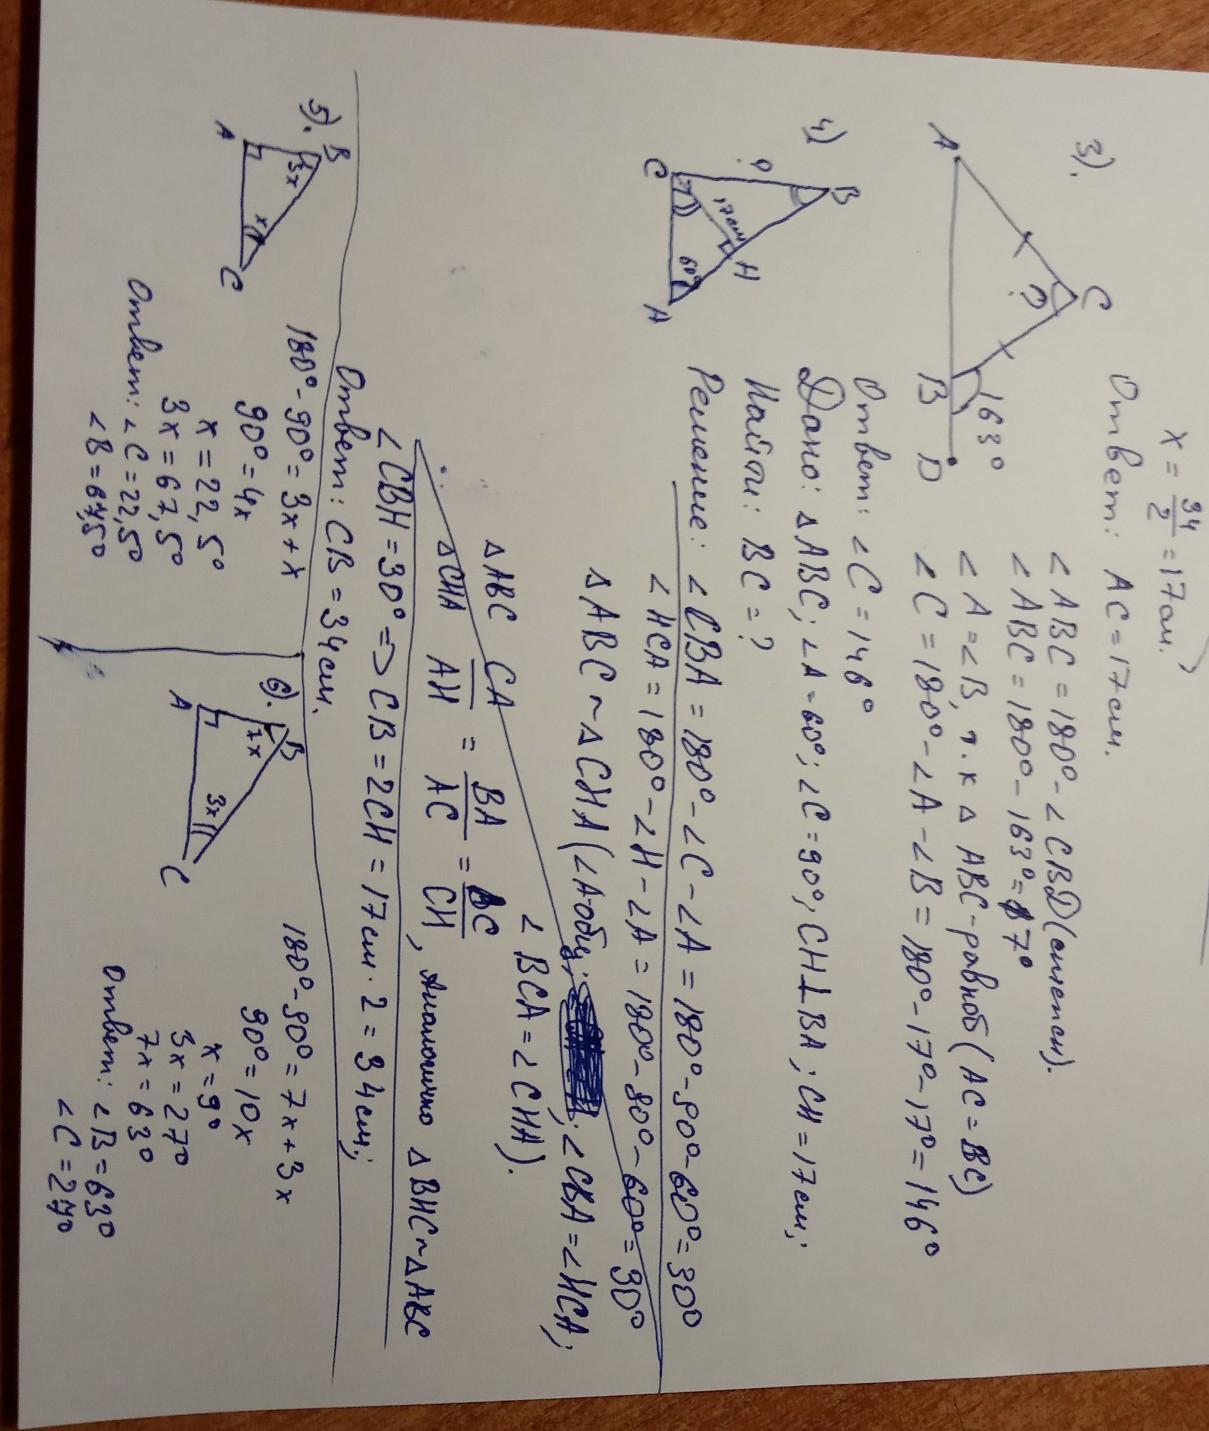 x = 34/2 = 17см.
Ответ: AC = 17см.
3).
A
C
?
B
D
163°
∠ABC = 180° - ∠CBD (смежн).
∠ABC = 180° - 163° = 17°
∠A = ∠B, т.к △ ABC - равноб (AC = BC)
∠C = 180° - ∠A - ∠B = 180° - 17° - 17° = 146°
Ответ: ∠C = 146°
4)
B
?
C
17см
H
60°
A
Дано: △ABC; ∠A = 60°; ∠C = 90°; CH ⊥ BA; CH = 17см;
Найти: BC = ?
Решение: ∠CBA = 180° - ∠C - ∠A = 180° - 90° - 60° = 30°
∠HCA = 180° - ∠H - ∠A = 180° - 90° - 60° = 30°
△ABC ~ △CHA (∠A общ; ∠CBA = ∠HCA;
∠BCA = ∠CHA).
△ABC CA/AH = BA/AC = BC/CH, Аналогично △BHC ~ △ABC
△CHA
∠CBH = 30° => CB = 2CH = 17см · 2 = 34см;
Ответ: CB = 34см.
5).
B
3x
A
x
C
180° - 90° = 3x + x
90° = 4x
x = 22,5°
3x = 67,5°
Ответ: ∠C = 22,5°
∠B = 67,5°
6).
B
7x
A
3x
C
180° - 90° = 7x + 3x
90° = 10x
x = 9°
3x = 27°
7x = 63°
Ответ: ∠B = 63°
∠C = 27°